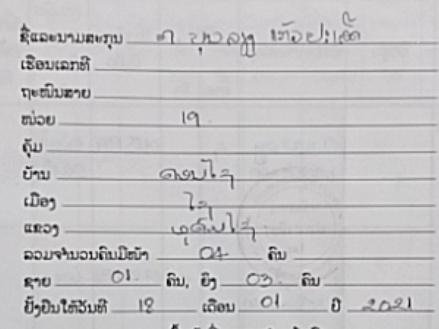 ຊື່ແລະນາມສະກຸນ
ເຮືອນເລກທີ
ຖະໜົນສາຍ
ໜ່ວຍ 19
ຄຸ້ມ
ບ້ານ
ເມືອງ ໄຊ
ແຂວງ ອຸດົມໄຊ
ລວມຈຳນວນຄົນມີໜ້າ 04 ຄົນ
ຊາຍ 01 ຄົນ, ຍິງ 03 ຄົນ
ຢັ້ງຢືນໃຫ້ວັນທີ 12 ເດືອນ 01 ປີ 2021